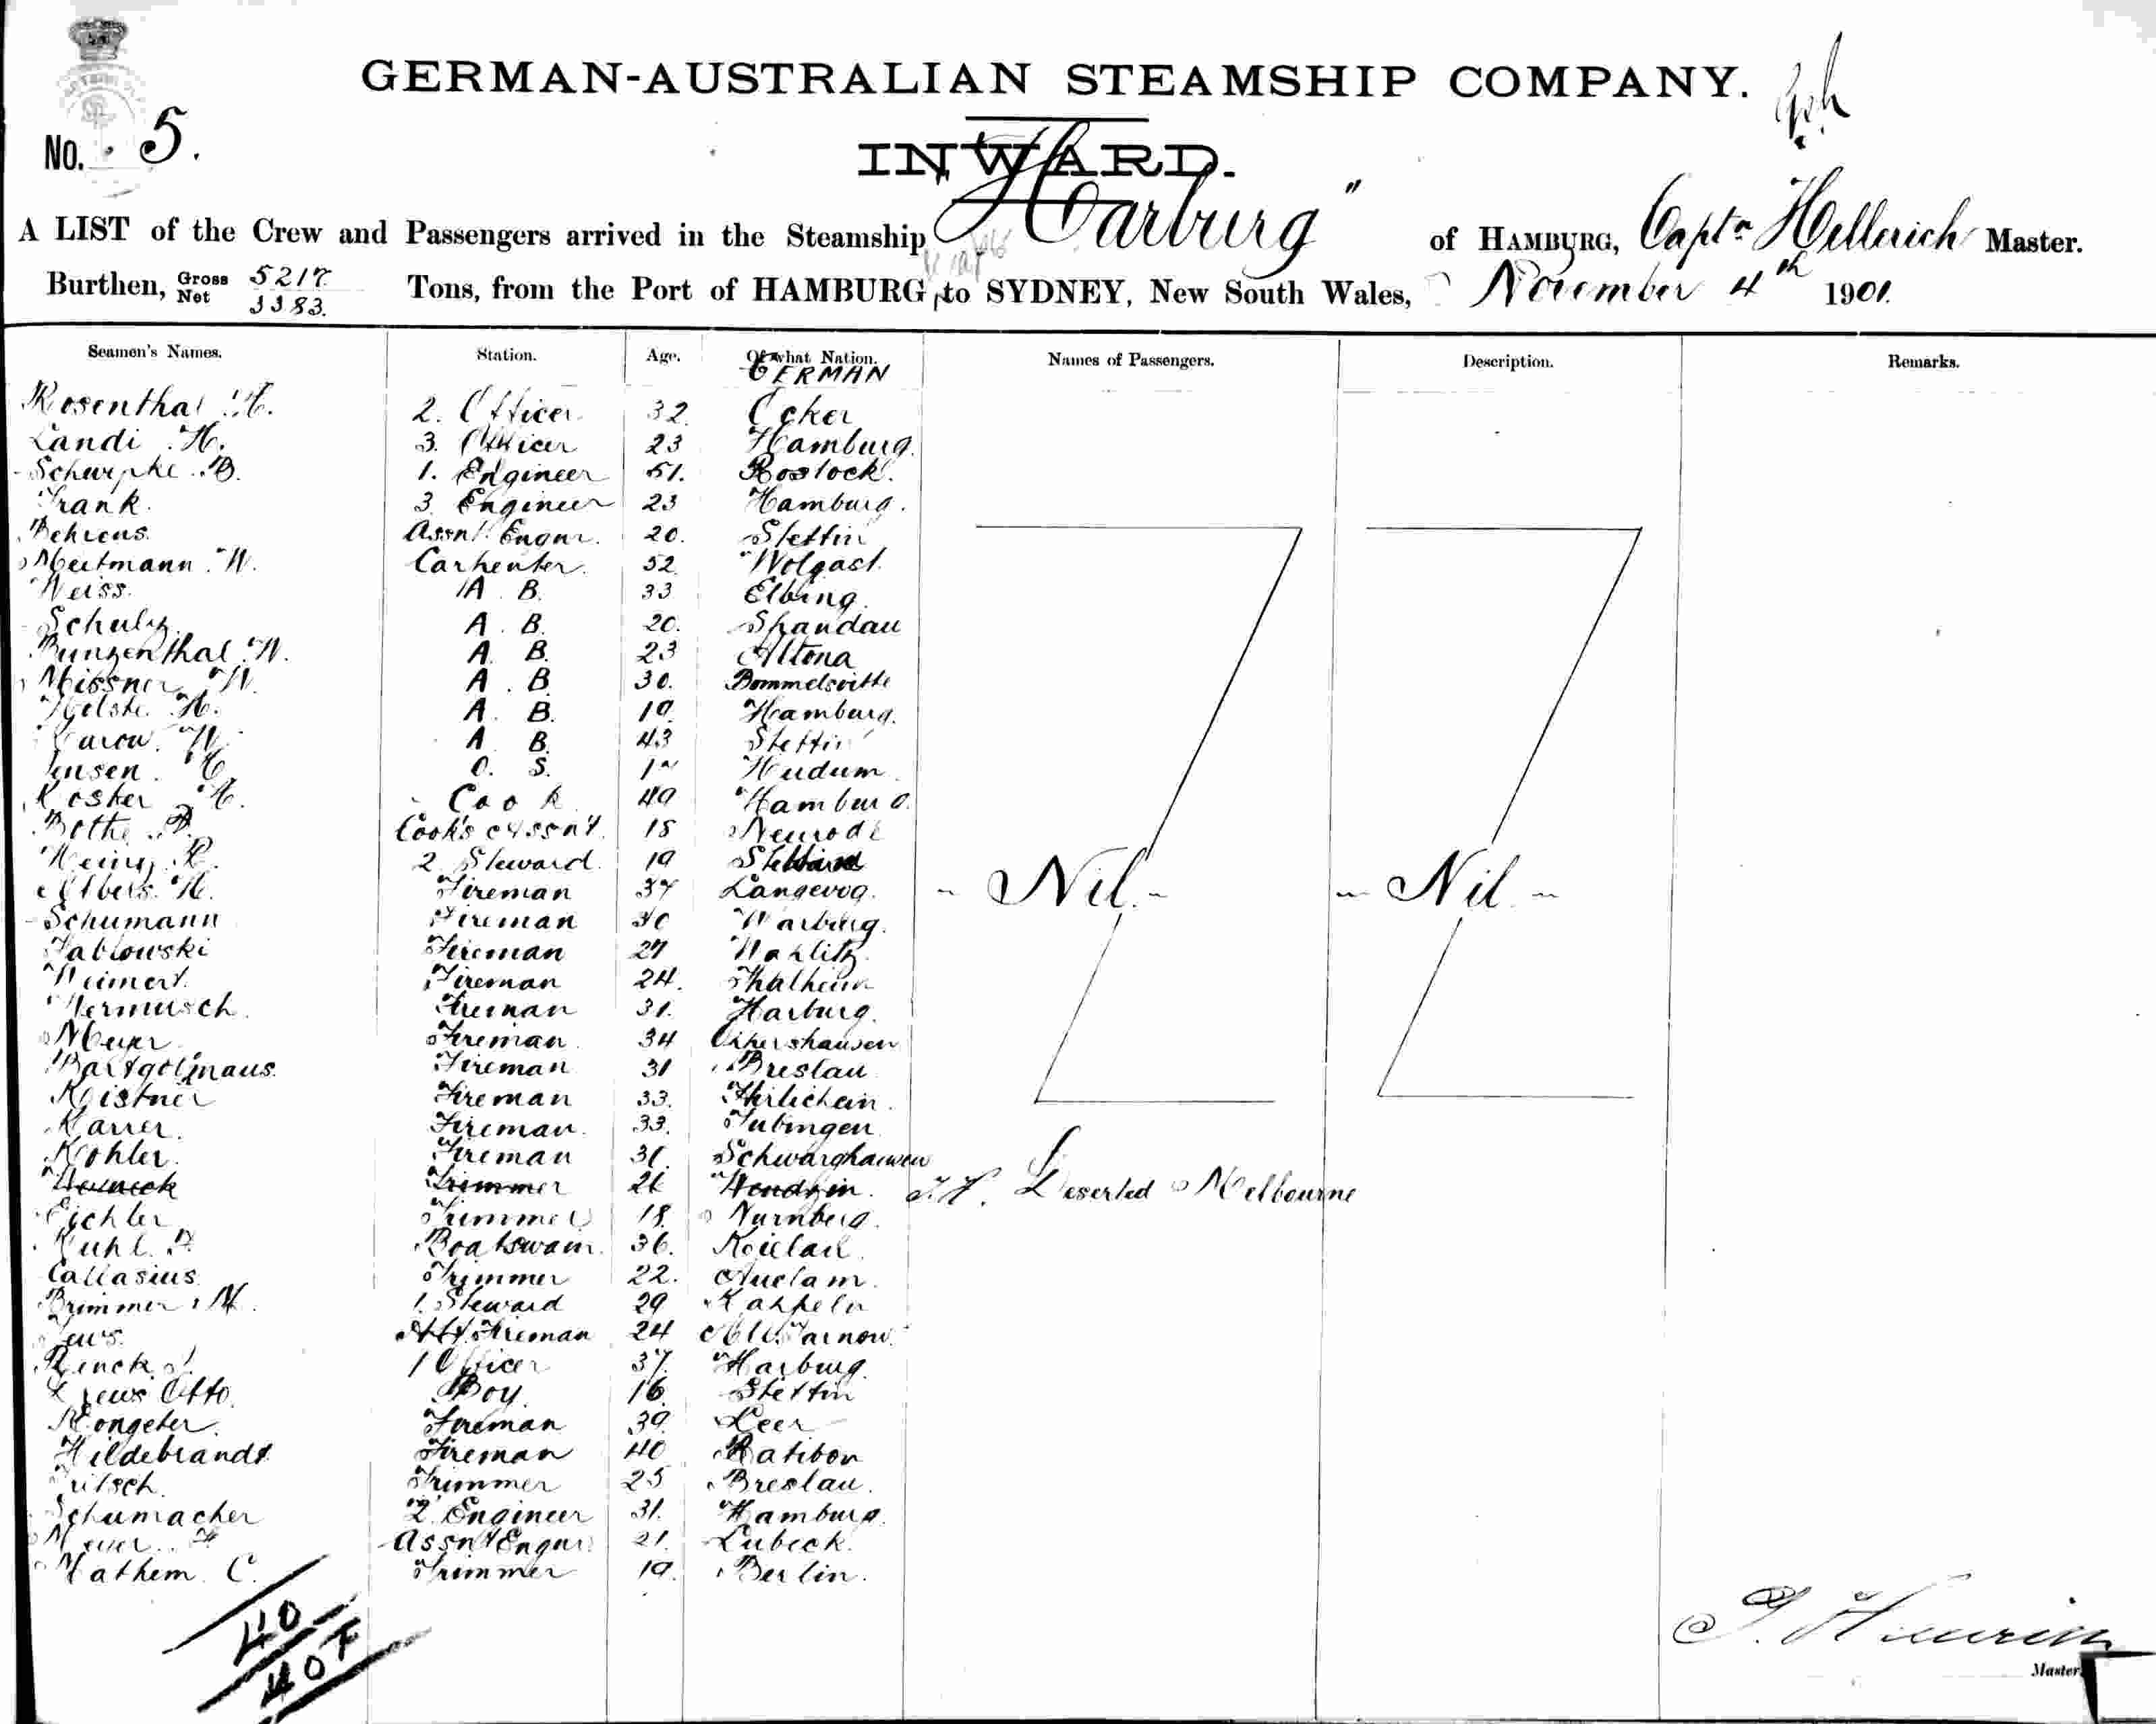 GERMAN-AUSTRALIAN STEAMSHIP COMPANY.
No. 5.
INWARD.
A LIST of the Crew and Passengers arrived in the Steamship "Harburg" of HAMBURG, Capt. Hellerich Master.
Burthen, Gross 5217 Net 3383. Tons, from the Port of HAMBURG to SYDNEY, New South Wales, November 4th 1901.
Seamen's Names. Station. Age. Of what Nation. Names of Passengers. Description. Remarks.
GERMAN
Rosenthal H. 2. Officer 32. Ocker
Landi H. 3. Officer 23 Hamburg.
Schwepke B. 1. Engineer 51. Rostock.
Frank. 3 Engineer 23 Hamburg.
Behrens. Assnt. Engnr. 20. Stettin
Meitmann W. Carpenter. 52 Wolgast.
Weiss. A. B. 33 Elbing.
Schulz. A. B. 20. Spandau
Bunzenthal W. A. B. 23 Altona
Missner W. A. B. 30. Bommelsvitte
Helste H. A. B. 19. Hamburg.
W. A. B. 43 Stettin
Jensen. O. S. Hudum.
Koster H. Cook 49 Hamburg.
Bothe Cook's Assnt. 18 Neurode
Heinz R. 2 Steward. 19
Albers. H. Fireman 37 Langeoog.
Schumann Fireman 30 Warburg.
Jablowski Fireman 27 Nahlitz.
Weimert. Fireman 24. Thalheim
Wermusch. Fireman 31. Harburg.
Meyer Fireman. 34
Fireman 31 Breslau
Kistner Fireman 33.
Karrer. Fireman. 33. Tubingen
Kohler. Fireman 31. Schwarzhausen
Trimmer 21 Deserted Melbourne
Eichler Trimmer 18. Nurnberg.
Kuhl. Boatswain. 36.
Callasius. Trimmer 22. Anclam.
Brimmer M. 1. Steward 29 Kappeln
Fireman 24
Renck 1 Officer 37. Harburg.
Otto. Boy. 16 Stettin
Rongeter. Fireman 39. Leer
Hildebrandt Fireman 40 Ratibor
Trimmer 25 Breslau.
Schumacher 2. Engineer 31. Hamburg.
Meyer Assnt Engnr. 21. Lubeck.
Mathem. C. Trimmer 19. Berlin.
- Nil. - - Nil -
40
40 F
Master.